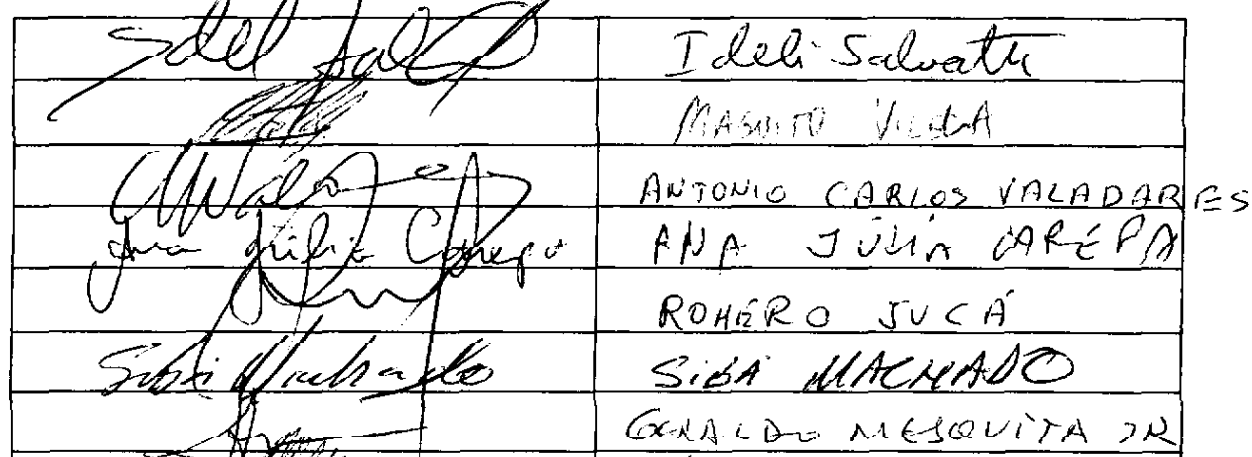 Ideli Salvatti
MAGUITO VILELA
ANTONIO CARLOS VALADARES
Ana Júlia Carepa ANA JÚLIA CARÉPA
ROMERO JUCÁ
Sibá Machado SIBÁ MACHADO
GERALDO MESQUITA JR